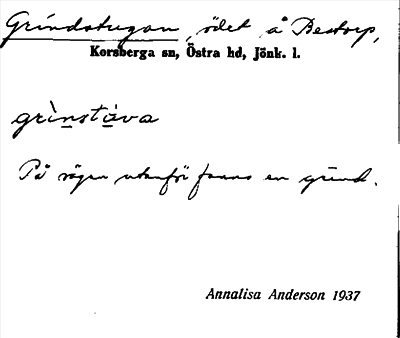 Grindstugan, ödet å Bestorp,
Korsberga sn, Östra hd, Jönk. l.
grìnstáva
På vägen utanför fanns en grind.
Annalisa Anderson 1937